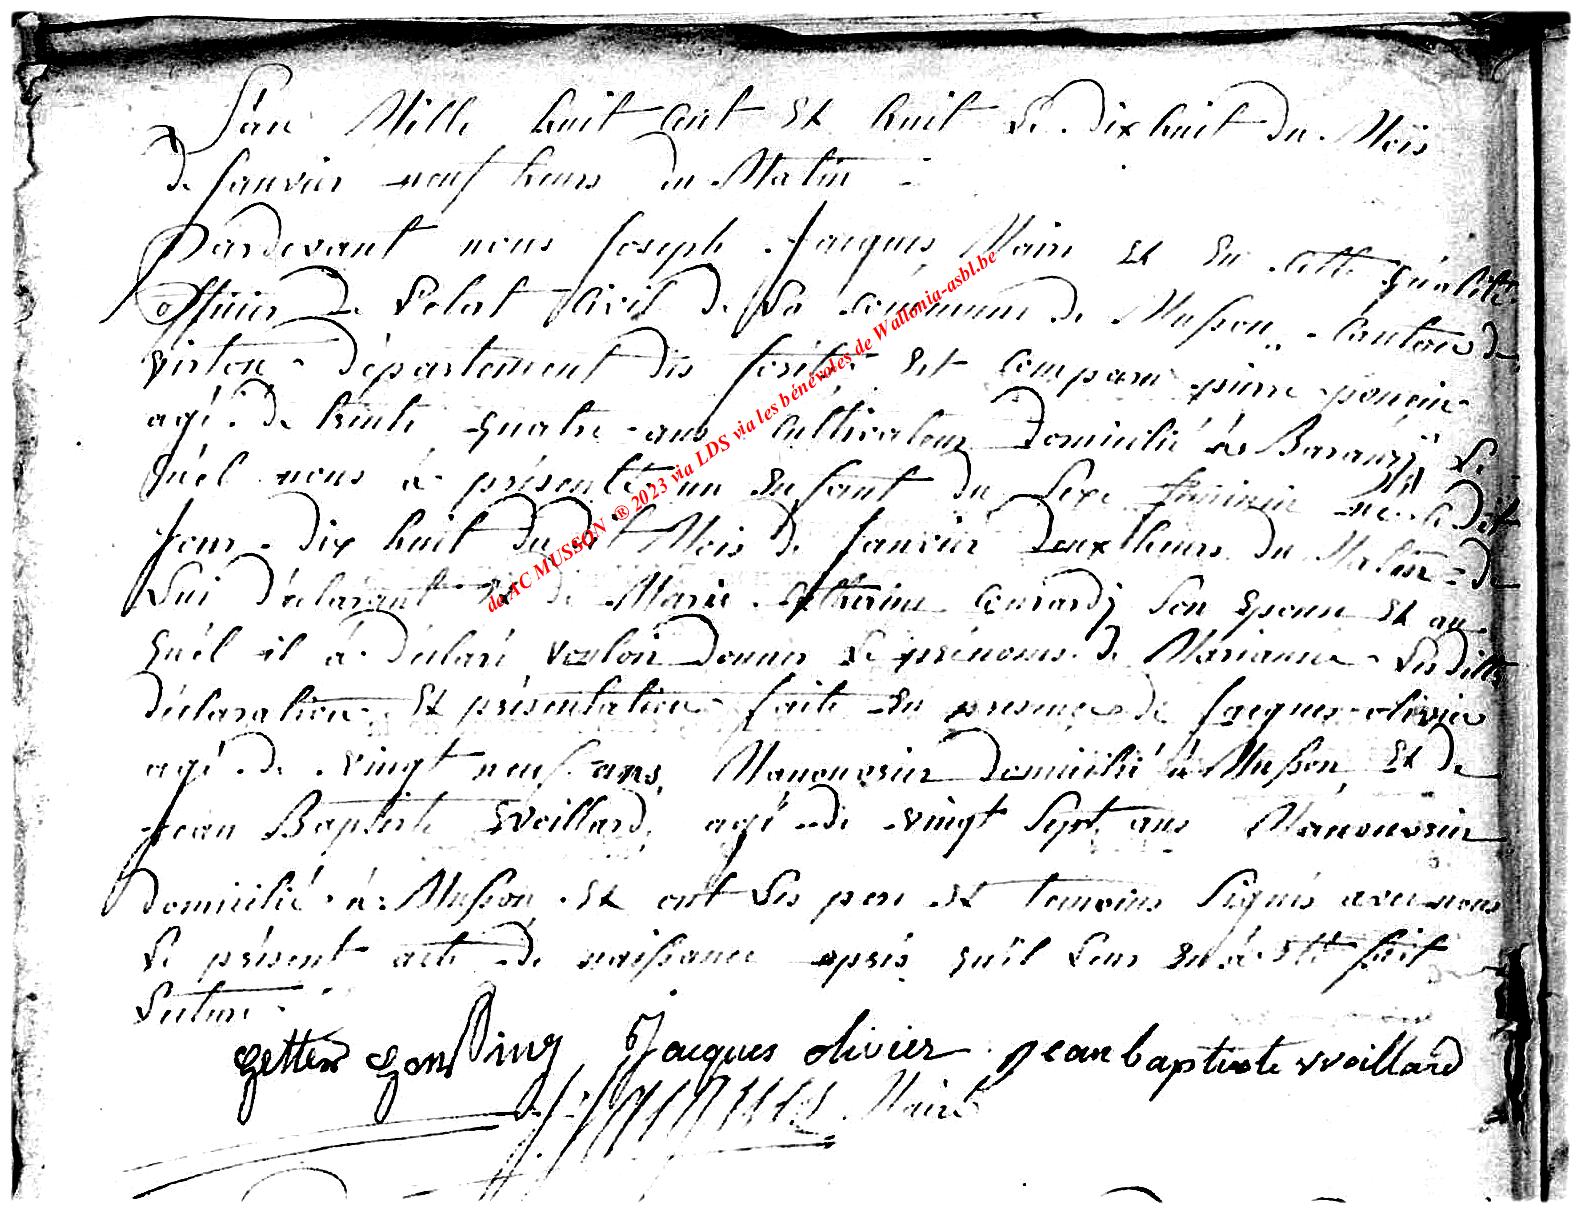 L'an Mille huit Cent Et huit Le dix huit du Mois
de Janvier neuf heures du Matin
Pardevant nous Joseph Jacques Maire Et En Cette qualité
officier De L'etat Civil de La Commune de Musson, Canton de
virton département des forêts Est Comparu pierre poncin
agé de trente quatre ans Cultivateur Domicilié à Baranzÿ Le
quel nous à présenté un Enfant du Sexe feminin né Ledit
Jour dix huit dudit Mois de Janvier Deux heures du Matin de
Lui déclarant Et de Marie Catherine Conrardÿ Son Epouse Et au
quel il à déclaré vouloir Donner Le prénoms de Marianne Lesdittes
déclaration Et présentation faite En presence de Jacques olivier
agé de vingt neuf ans, Manouvrier Domicilié à Musson Et de
jean Baptiste Weillard, agé de vingt Sept ans Manouvrier
domicilié à Musson Et ont Les pere Et temoins Signés avec nous
Le présent acte de naissance après qu'il Leur En à Eté fait
Lecture
Jacques olivier jean baptiste weillard
Maire
de AC MUSSON ® 2023 via LDS via les bénévoles de Wallonia-asbl.be